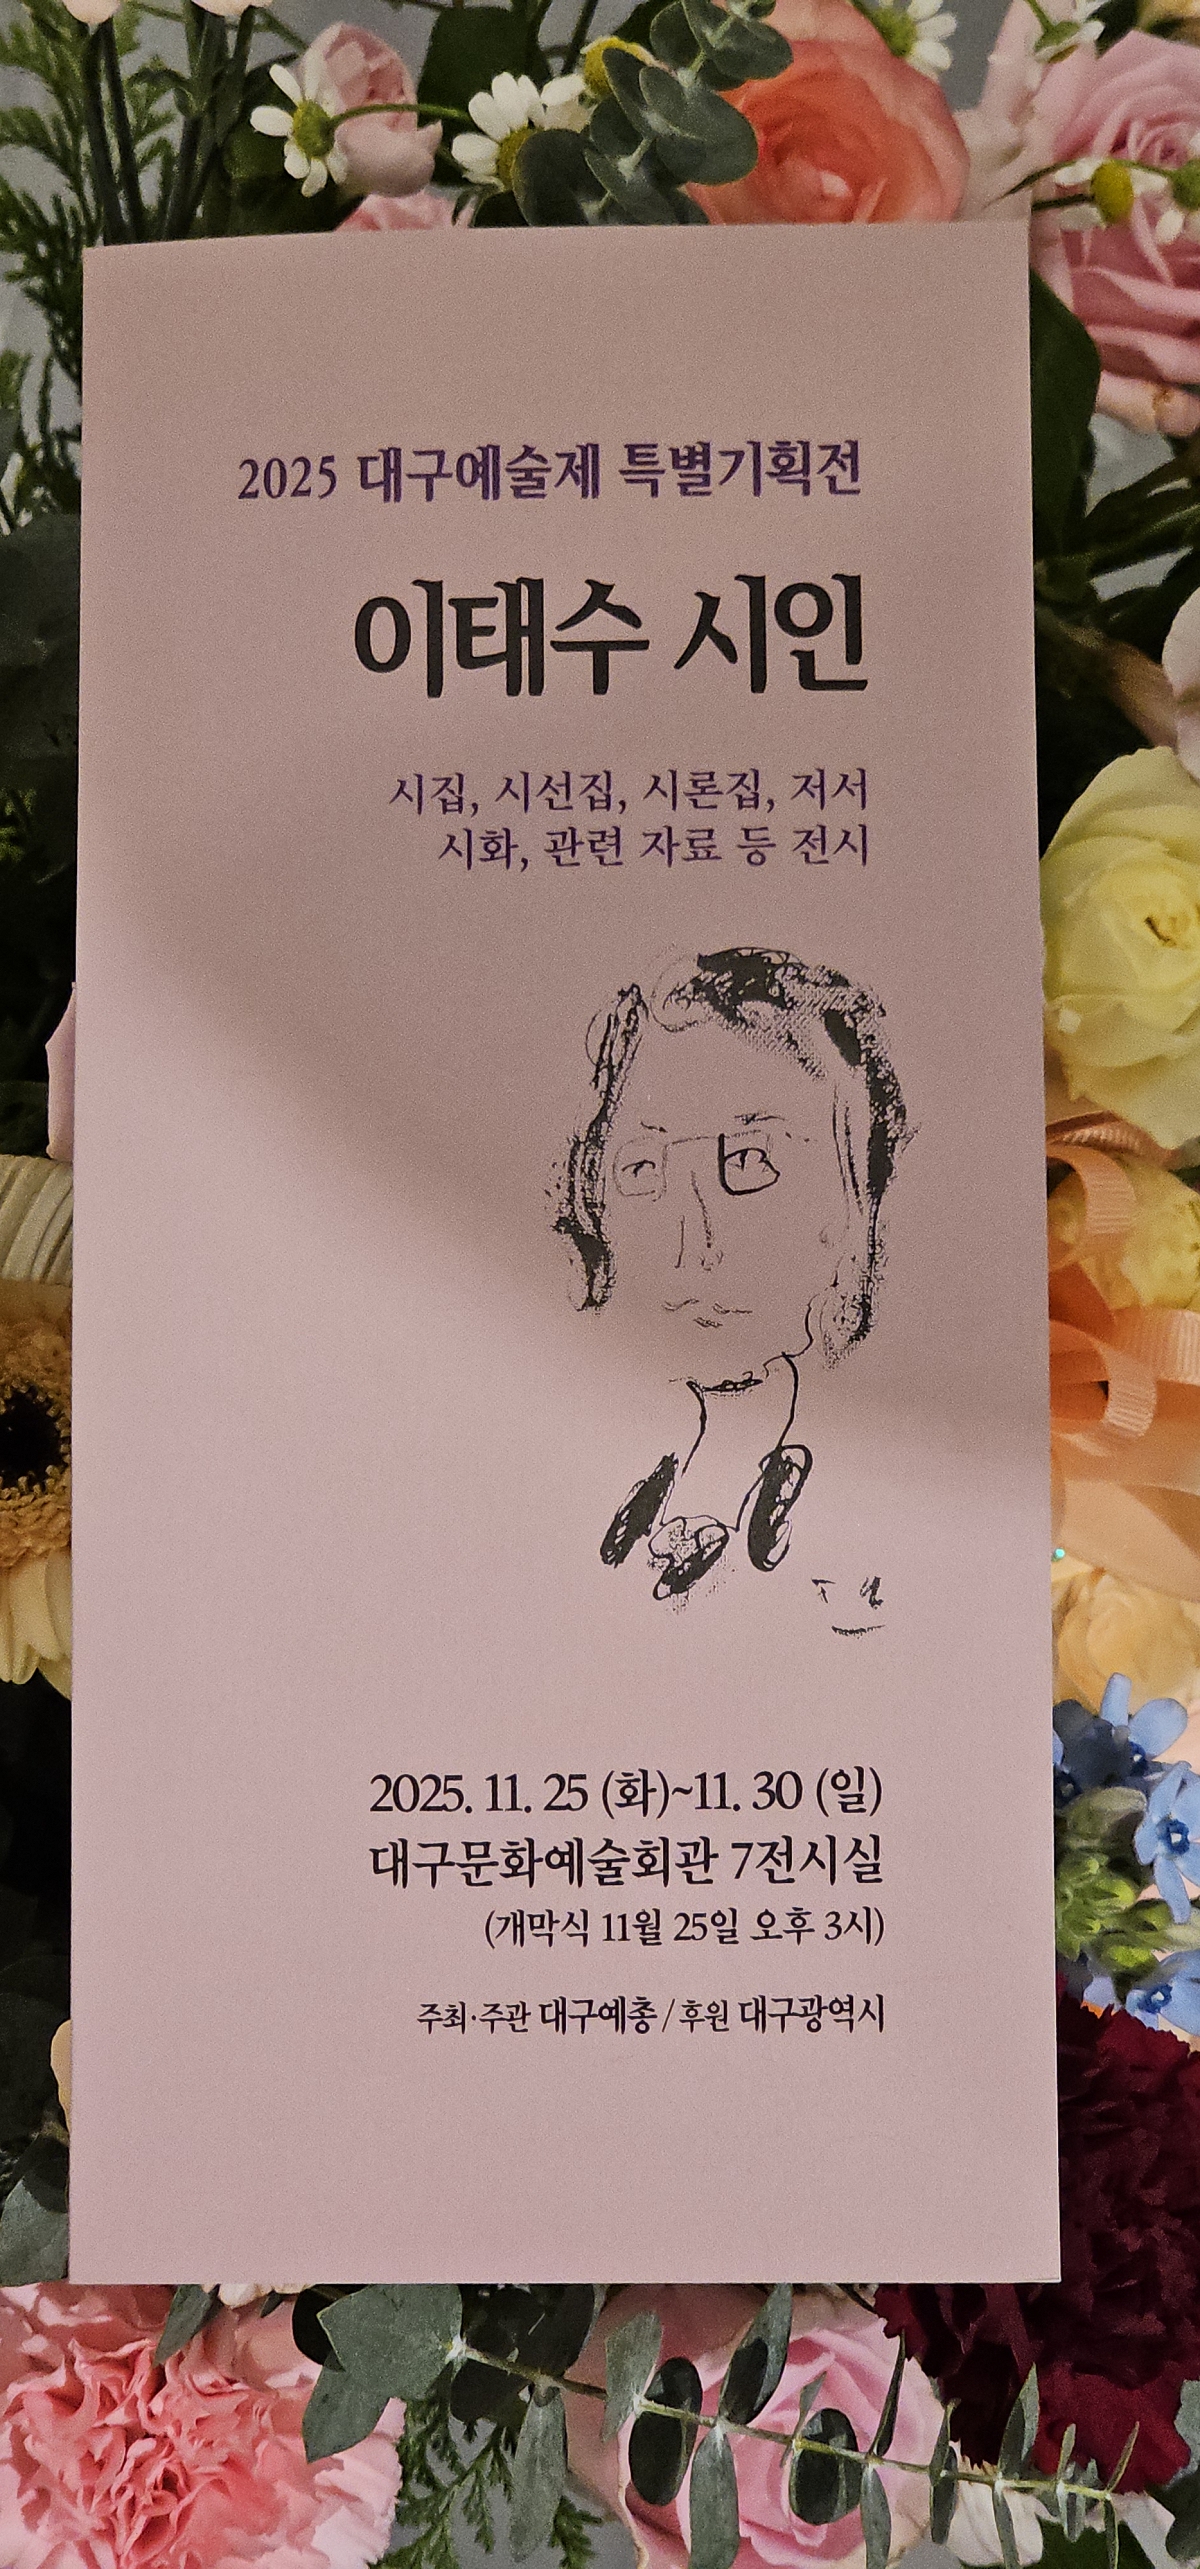 2025 대구예술제 특별기획전
이태수 시인
시집, 시선집, 시론집, 저서
시화, 관련 자료 등 전시
2025. 11. 25 (화)~11. 30 (일)
대구문화예술회관 7전시실
(개막식 11월 25일 오후 3시)
주최·주관 대구예총 / 후원 대구광역시